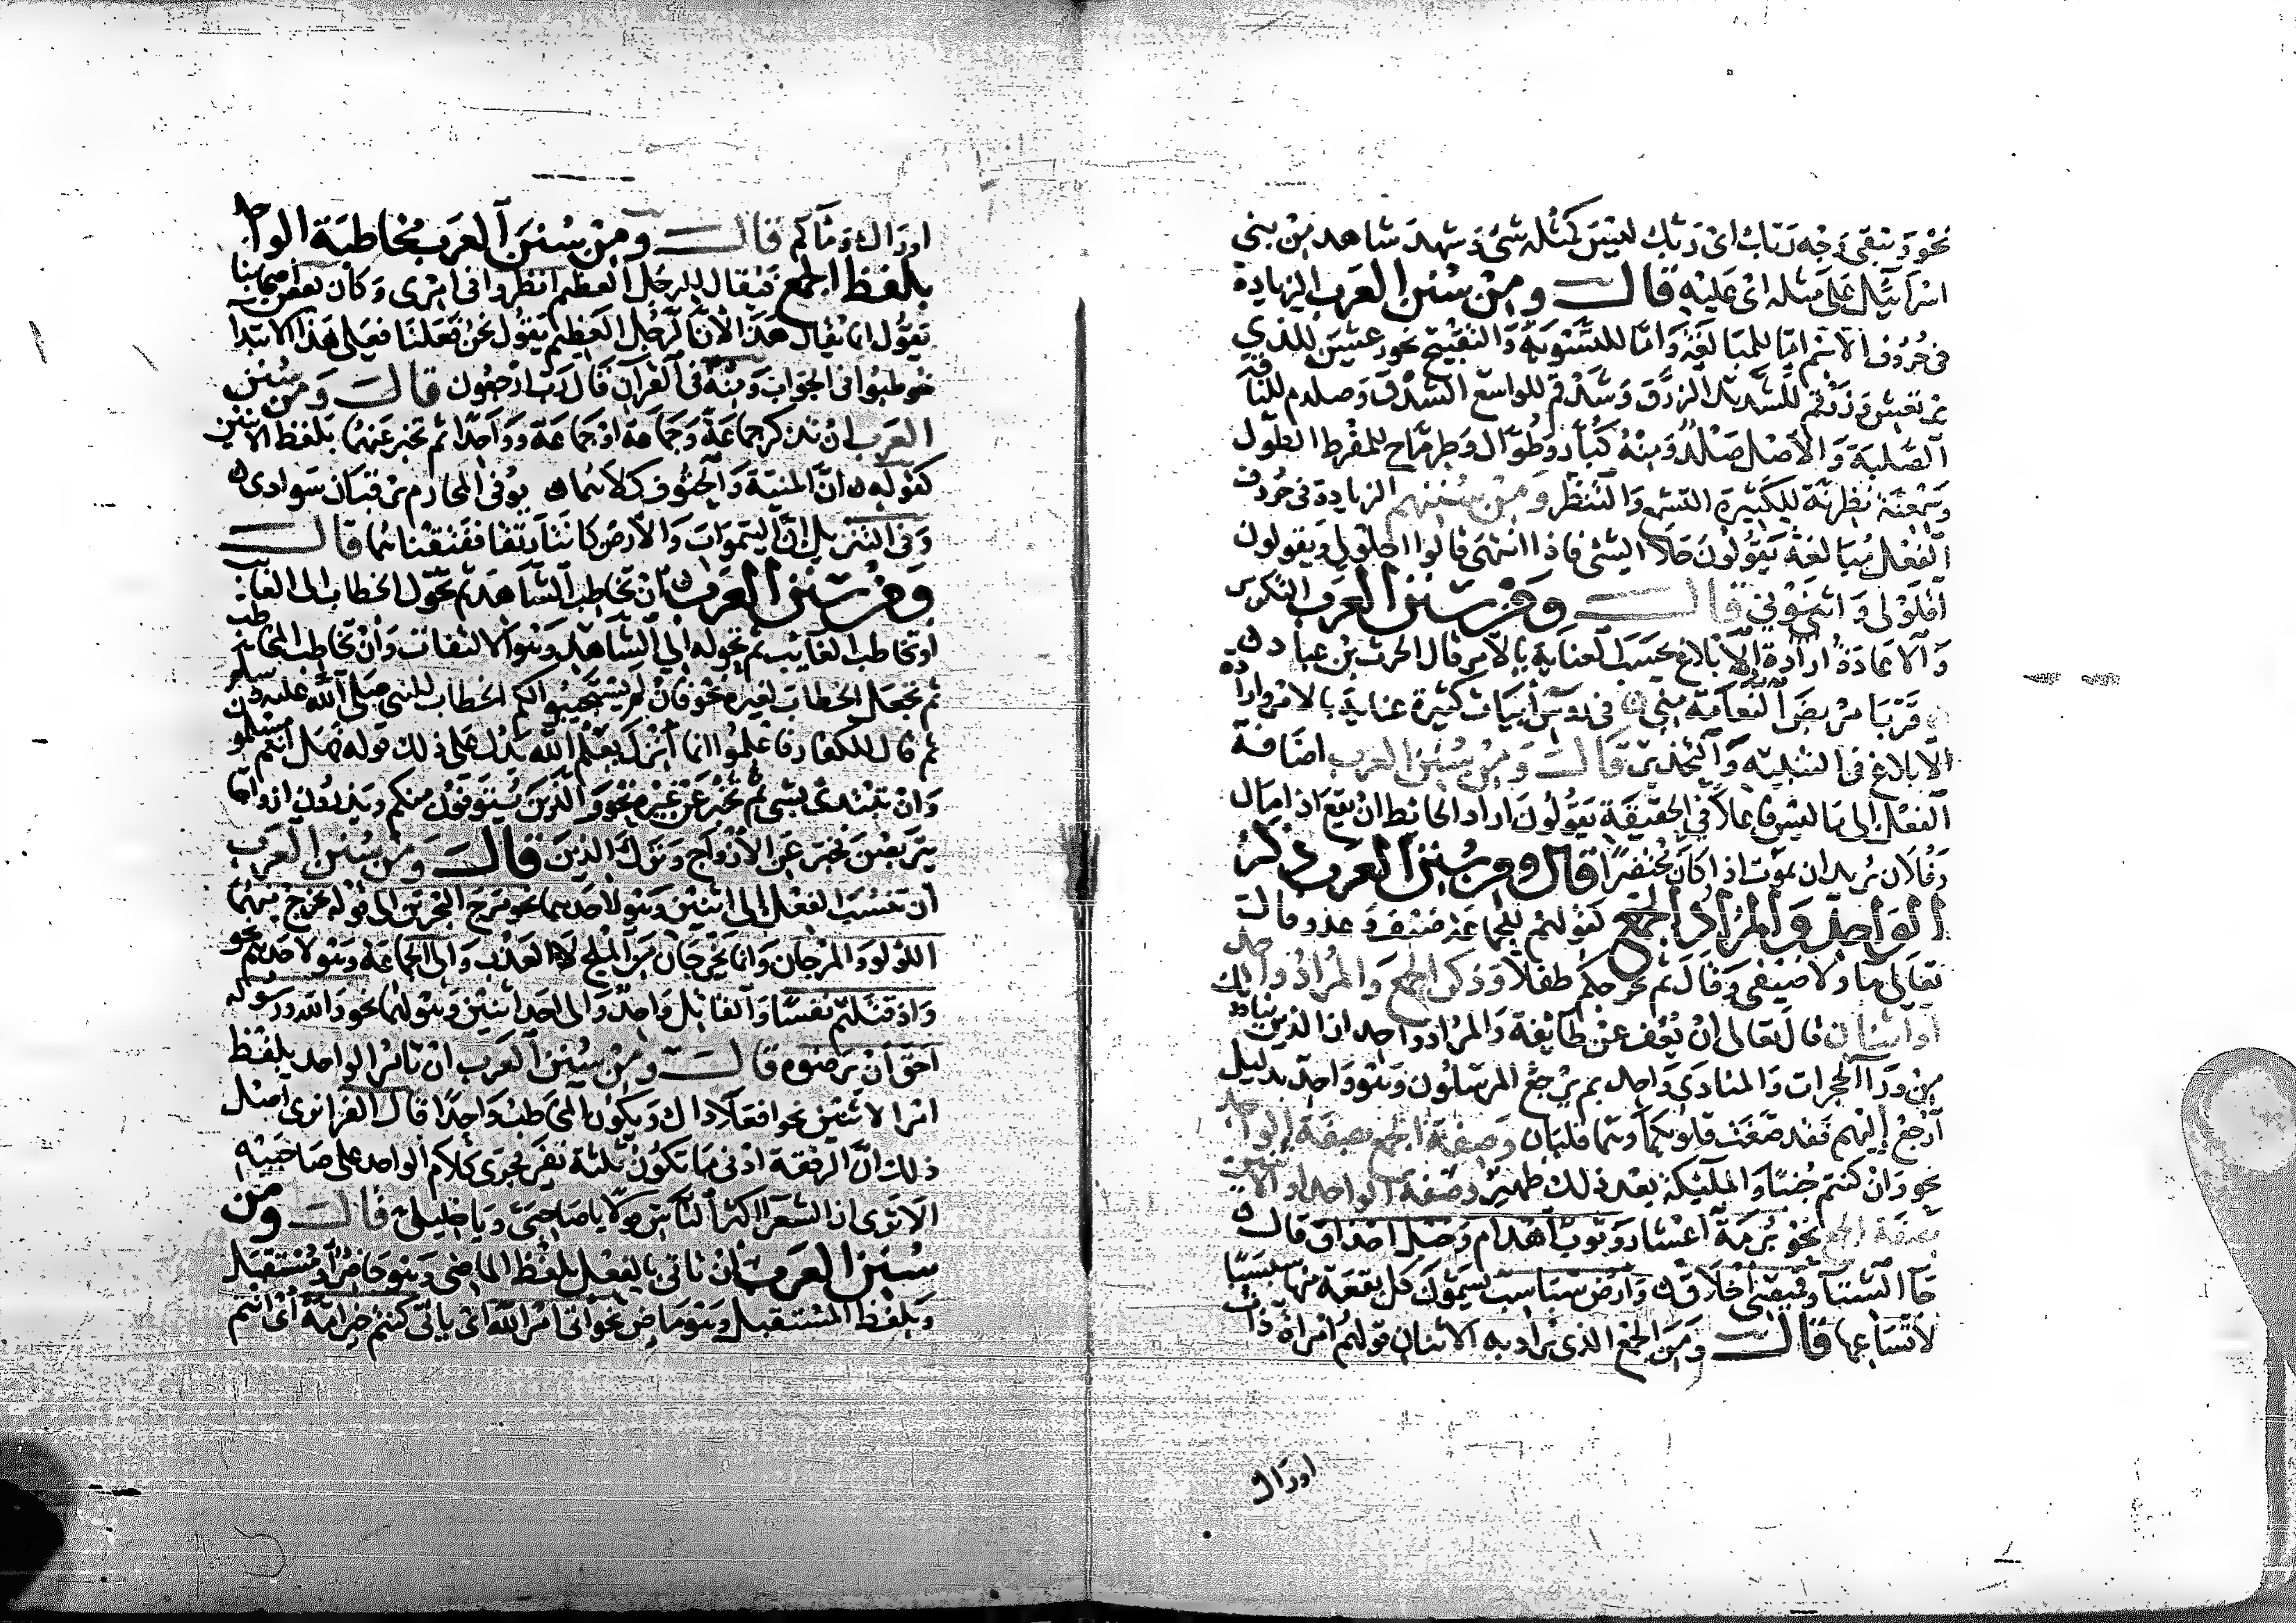 نحو ويبقى وجه ربك اى ربك ليس كمثله شئ وشهد شاهد من بنى
اسرائيل على مثله اى عليه قال ومن سنن العرب الزيادة
فى حروف الاسم اما للمبالغة واما للتشويه والتقبيح نحو رعشن للذي
يرتعش وزرقم للشديد الزرق وشدقم للواسع الشدق وصلدم للناقة
الصلبة والاصل صلد ومنه كبار وطوال وطرماح للمفرط الطول
وسمعنة نظرنة للكثيرة التسمع والتنظر ومن سننهم الزيادة فى حروف
الفعل مبالغة يقولون حلا الشئ فاذا انتهى قالوا احلولى ويقولون
اقلولى واثنونى قال ومن سنن العرب التكرير
والاعادة ارادة الابلاغ بحسب العناية بالامر قال الحرث بن عباد
قربا مربط النعامة منى فى رءوس أبيات كثيرة عناية بالامر وارادة
الابلاغ فى التنبيه والتحذير قال ومن سنن العرب اضافة
الفعل الى ما ليس فاعلا فى الحقيقة يقولون اراد الحائط ان يقع اذا مال
وفلان يريد ان يموت اذا كان محتضرا قال ومن سنن العرب ذكر
الواحد والمراد الجمع كقولهم للجماعة ضيف وعدو قال
تعالى هاولا ضيفى وقال ثم نخرجكم طفلا وذكر الجمع والمراد واحد
أو اثنان قال تعالى ان نعف عن طائفة والمراد واحد ان الذين ينادونك
من ورا الحجرات والمنادى واحد بم يرجع المرسلون وهو واحد بدليل
ارجع إليهم فقد صغت قلوبكما وهما قلبان وصفة الجمع بصفة الواحد
نحو وان كنتم جنبا والمليكة بعد ذلك ظهير وصفة الواحد او الاثنين
بصفة الجمع نحو برمة اعشار وثوب اهدام وحبل احذاق قال
جا الشتا وقميصى اخلاق وارض سباسب يسمون كل بقعة منها سبسبا
لاتساعها قال ومن الجمع الذى يراد به الاثنان قولهم امراة ذات
اوراك
اوراك وماكم قال ومن سنن العرب مخاطبة الواحد
بلفظ الجمع فيقال للرجل العظيم انظروا فى امرى وكان بعض اصحابنا
يقول انما يقال هذا لان الرجل العظيم يقول نحن فعلنا فعلى هذا الابتدا
خوطبوا فى الجواب ومنه فى القرآن قال رب ارجعون قال ومن سنن
العرب ان تذكر جماعة وجماعة او جماعة وواحدا ثم تخبر عنهما بلفظ الاثنين
كقوله ان المنية والحتوف كلاهما يوفى المخارم يرقبان سوادى
وفى التنزيل ان السموات والارض كانتا رتقا ففتقناهما قال
ومن سنن العرب ان تخاطب الشاهد ثم تحول الخطاب الى الغائب
او تخاطب الغايب ثم تحوله الى الشاهد وهو الالتفات وان تخاطب المخاطب
ثم تجعل الخطاب لغيره نحو فان لم يستجيبوا لكم الخطاب للنبى صلى الله عليه وسلم
ثم قال للكفار فاعلموا انما أنزل بعلم الله يدل على ذلك قوله فهل أنتم مسلمون
وان تبتدئ بشئ ثم تخبر عن غيره نحو والذين يتوفون منكم ويذرون ازواجا
يتربصن فخبر عن الازواج وترك الذين قال ومن سنن العرب
ان تنسب الفعل الى اثنين وهو لاحدهما نحو مرج البحرين الى قوله يخرج منهما
اللؤلؤ والمرجان وانما يخرجان من الملح لا العذب والى الجماعة وهو لاحدهم نحو
واذ قتلتم نفسا والقاتل واحد والى احد اثنين وهو لهما نحو والله ورسوله
احق ان يرضوه قال ومن سنن العرب ان تامر الواحد بلفظ
امر الاثنين نحو افعلا ذاك ويكون المخاطب واحدا قال الفرا نرى اصل
ذلك ان الرفقة ادنى ما تكون ثلثة نفر فجرى كلام الواحد على صاحبيه
الا ترى ان الشعرا اكثر الناس قولا يا صاحبى ويا خليلى قال ومن
سنن العرب ان تاتى بالفعل بلفظ الماضى وهو حاضر او مستقبل
وبلفظ المستقبل وهو ماض نحو اتى امر الله اى ياتى كنتم خير امة اى انتم